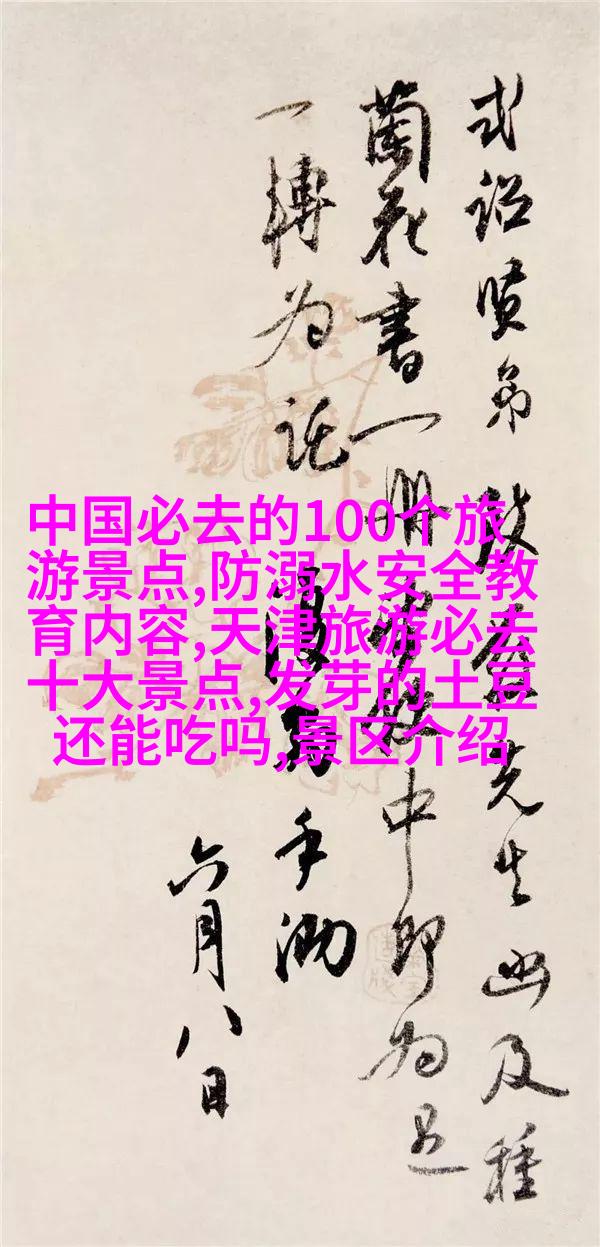 式詒贤弟 致蔡先生函及種
蘭花書一册中即为
一轉为託手泐
六月八日
中国必去的100个旅
游景点,防溺水安全教
育内容,天津旅游必去
十大景点,发芽的土豆
还能吃吗,景区介绍